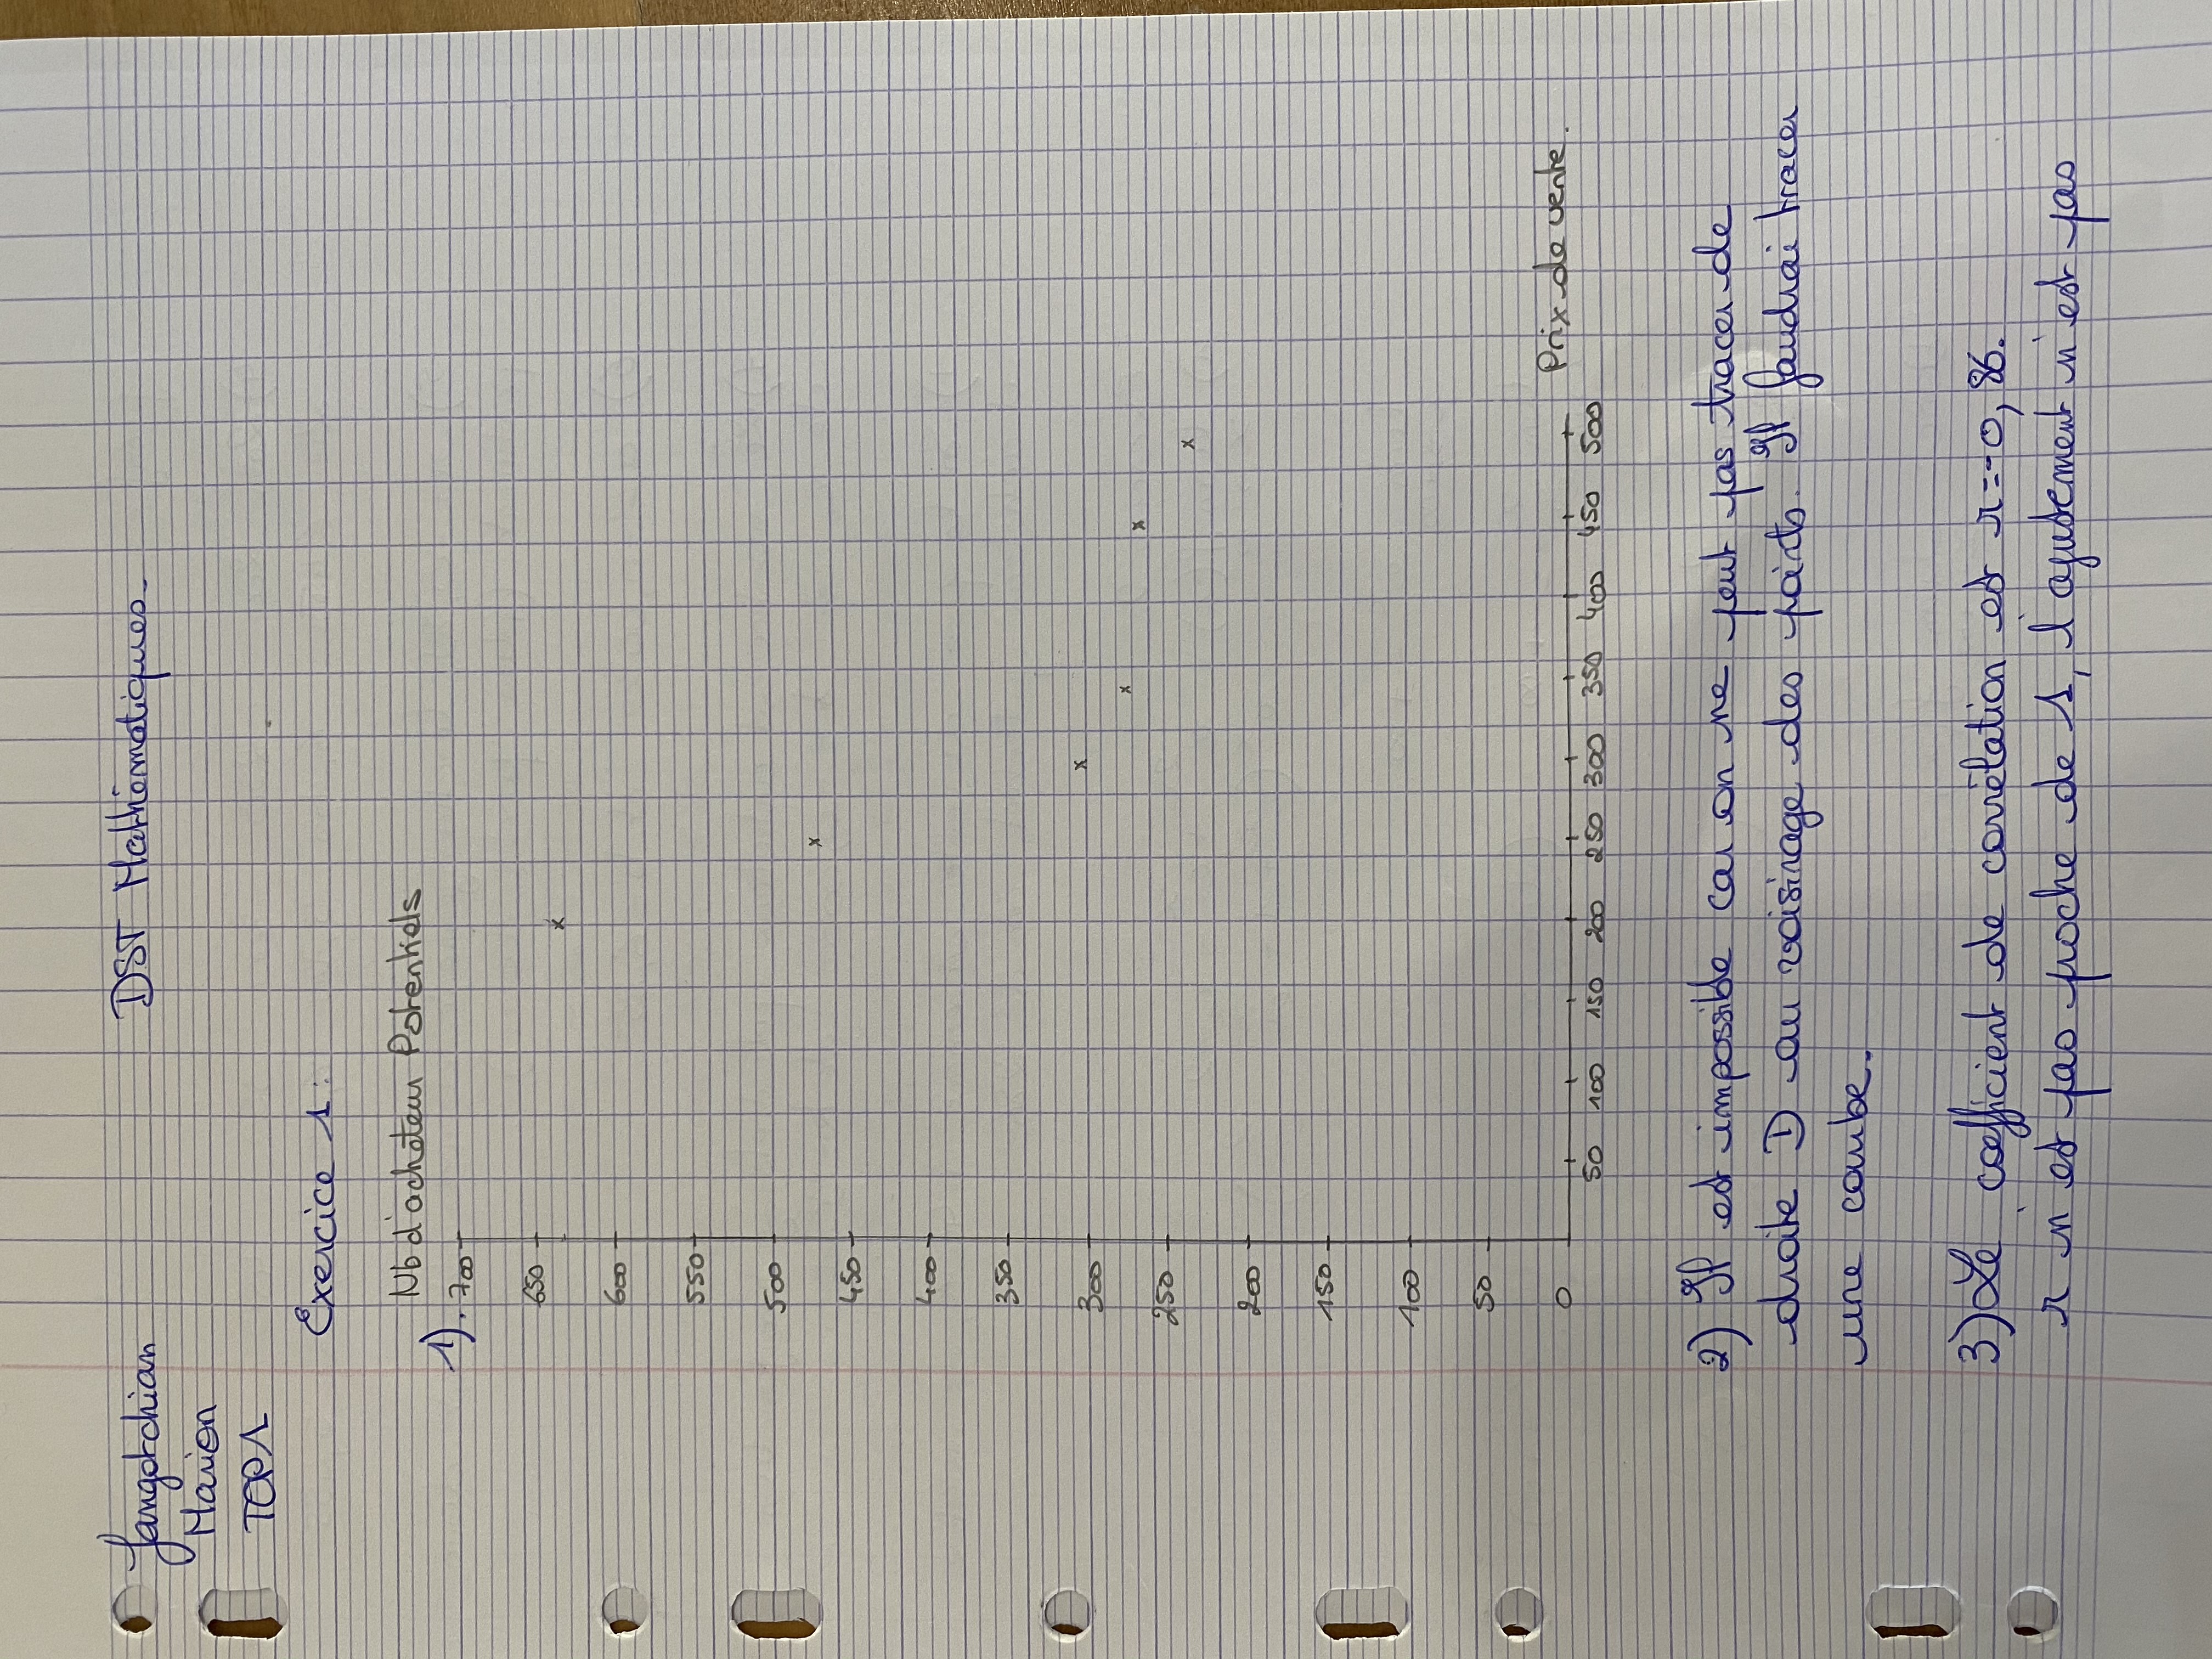 DST Mathématiques
Jangotchian
Marion
TOP1
Exercice 1:
Nb d'acheteur Potentiels
1).
700
650
600
550
500
450
400
350
300
250
200
150
100
50
0
50 100 150 200 250 300 350 400 450 500
Prix de vente.
2) Il est impossible car on ne peut pas tracer de
droite D au voisinage des points. Il faudrai tracer
une courbe.
3) Le coefficient de corrélation est r=-0,86.
r n'est pas proche de 1, l'ajustement n'est pas